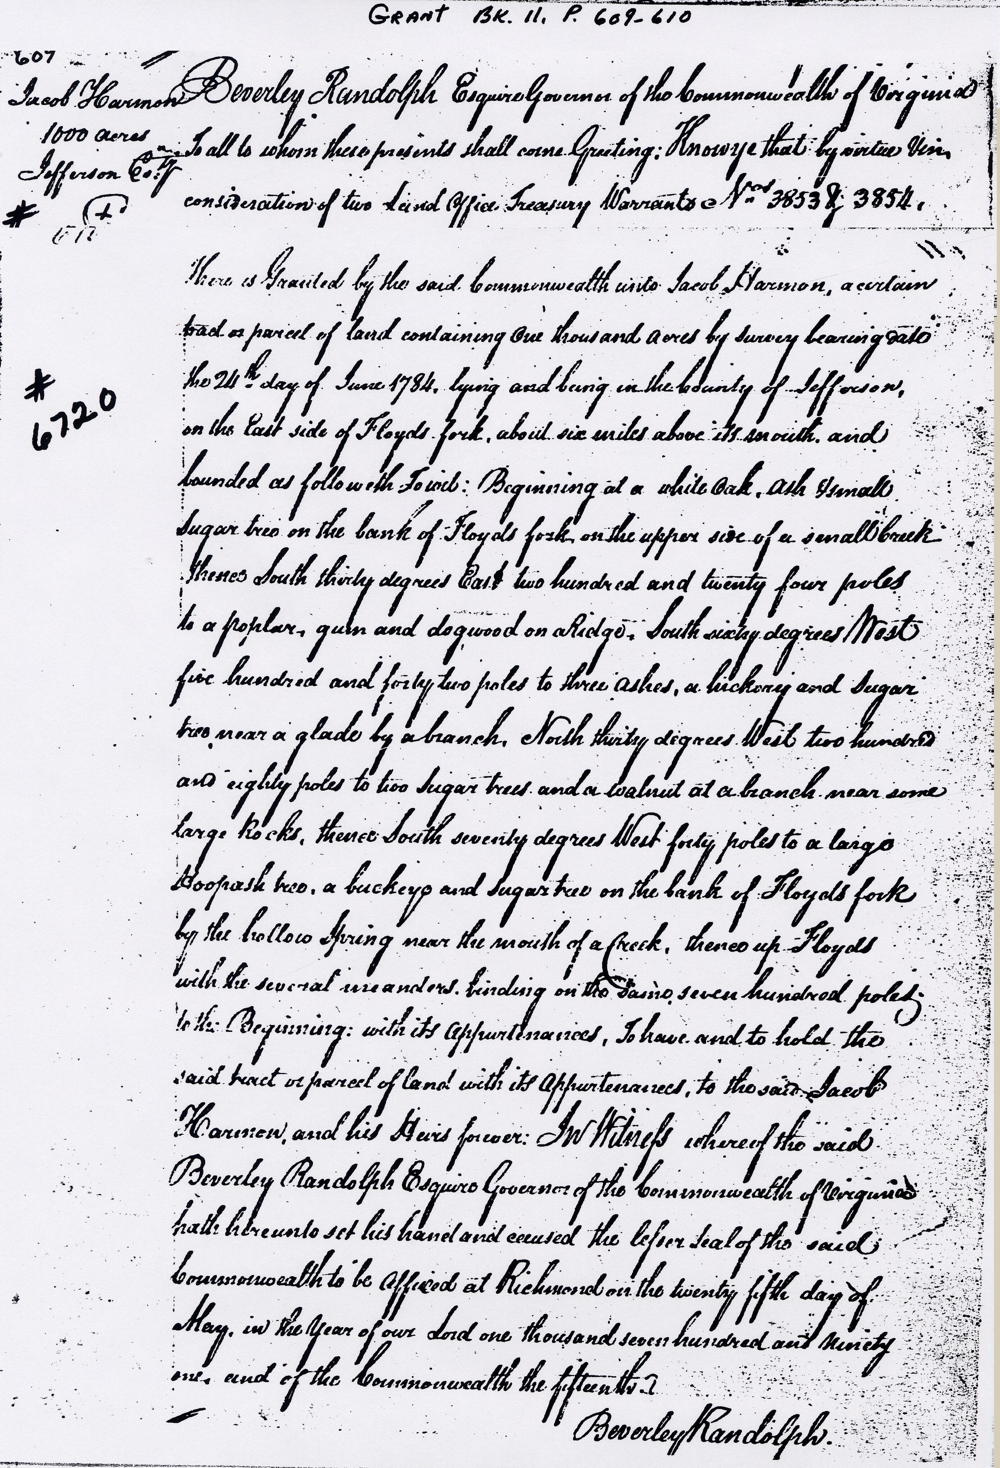 GRANT BK. 11. P. 609-610
607
Jacob Harmon
1000 acres
Jefferson Coty
#
#
6720
Beverley Randolph Esquire Governor of the Commonwealth of Virginia
To all to whom these presents shall come Greeting: Know ye that by virtue & in
consideration of two Land Office Treasury Warrants Nos. 3853 & 3854.
There is Granted by the said Commonwealth unto Jacob Harmon, a certain
tract or parcel of land containing One thousand acres by survey bearing date
the 24th day of June 1784. lying and being in the County of Jefferson,
on the East side of Floyds fork, about six miles above its mouth. and
bounded as followeth Towit: Beginning at a white Oak, Ash & small
Sugar tree on the bank of Floyds fork, on the upper side of a small Creek
thence South thirty degrees East two hundred and twenty four poles
to a poplar, gum and dogwood on a Ridge, South sixty degrees West
five hundred and forty two poles to three ashes, a hickory and Sugar
tree near a glade by a branch, North thirty degrees West two hundred
and eighty poles to two Sugar trees and a walnut at a branch near some
large Rocks, thence South seventy degrees West forty poles to a large
Hoopash tree, a buckeye and sugar tree on the bank of Floyds fork
by the hollow Spring near the mouth of a Creek, thence up Floyds
with the several meanders. binding on the Same, seven hundred poles
to the Beginning: with its Appurtenances, To have and to hold the
said tract or parcel of land with its Appurtenances, to the said Jacob
Harmon, and his Heirs forever: In Witness whereof the said
Beverley Randolph Esquire Governor of the Commonwealth of Virginia
hath hereunto set his hand and caused the lesser Seal of the said
Commonwealth to be Affixed at Richmond on the twenty fifth day of
May, in the Year of our Lord one thousand seven hundred and Ninety
one, and of the Commonwealth the fifteenth.
Beverley Randolph.